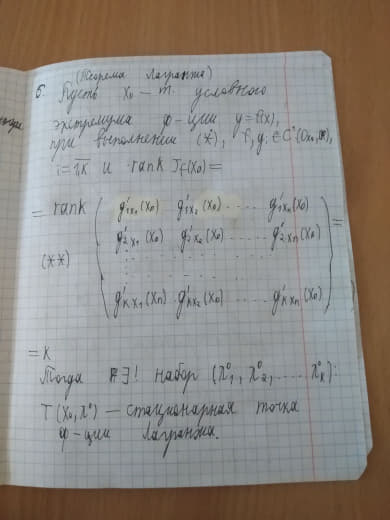 (Теорема Лагранжа)
6. Пусть x₀ — т. условного
экстремума ф-ции y = f(x),
при выполнении (*), f, gᵢ ∈ C'(Ox₀,
i = 1,k и rank J_f(x₀) =
= rank ( g'₁ₓ₁(x₀) g'₁ₓ₂(x₀) ..... g'₁ₓₙ(x₀) ) =
g'₂ₓ₁(x₀) g'₂ₓ₂(x₀) ..... g'₂ₓₙ(x₀)
(**)
g'ₖₓ₁(x₀) g'ₖₓ₂(x₀) ..... g'ₖₓₙ(x₀)
= k
Тогда ∃! набор (λ₁⁰, λ₂⁰, .... λₖ⁰):
T(x₀, λ⁰) — стационарная точка
ф-ции Лагранжа.